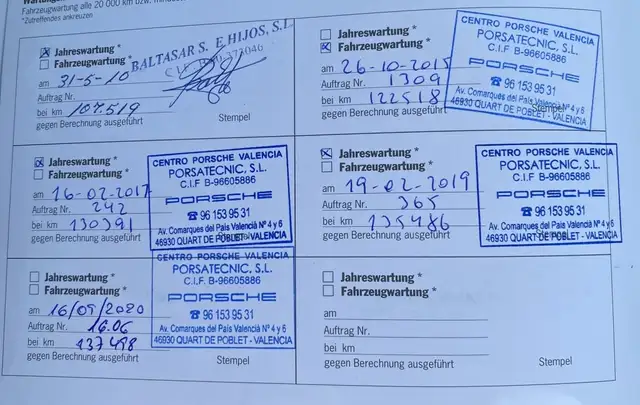 Fahrzeugwartung alle 20 000 km bzw.
*Zutreffendes ankreuzen
Jahreswartung *
Fahrzeugwartung *
am 31-5-10
Auftrag Nr.
bei km 107.519
gegen Berechnung ausgeführt
Stempel
BALTASAR S. E HIJOS, S.L.
Jahreswartung *
Fahrzeugwartung *
am 26-10-2015
Auftrag Nr. 1309
bei km 122518
gegen Berechnung ausgeführt
Stempel
CENTRO PORSCHE VALENCIA
PORSATECNIC, S.L.
C.I.F. B-96605886
PORSCHE
☎ 96 153 95 31
Av. Comarques del País Valencià Nº 4 y 6
46930 QUART DE POBLET - VALENCIA
Jahreswartung *
Fahrzeugwartung *
am 16-02-2017
Auftrag Nr. 242
bei km 130391
gegen Berechnung ausgeführt
CENTRO PORSCHE VALENCIA
PORSATECNIC, S.L.
C.I.F B-96605886
PORSCHE
☎ 96 153 95 31
Av. Comarques del País Valencià Nº 4 y 6
46930 QUART DE POBLET - VALENCIA
Jahreswartung *
Fahrzeugwartung *
am 19-02-2019
Auftrag Nr. 365
bei km 135486
gegen Berechnung ausgeführt
CENTRO PORSCHE VALENCIA
PORSATECNIC, S.L.
C.I.F B-96605886
PORSCHE
☎ 96 153 95 31
Av. Comarques del País Valencià Nº 4 y 6
46930 QUART DE POBLET - VALENCIA
Jahreswartung *
Fahrzeugwartung *
am 16/09/2020
Auftrag Nr. 1606
bei km 137498
gegen Berechnung ausgeführt
Stempel
CENTRO PORSCHE VALENCIA
PORSATECNIC, S.L.
C.I.F. B-96605886
PORSCHE
☎ 96 153 95 31
Av. Comarques del País Valencià Nº 4 y 6
46930 QUART DE POBLET - VALENCIA
Jahreswartung *
Fahrzeugwartung *
am
Auftrag Nr.
bei km
gegen Berechnung ausgeführt
Stempel